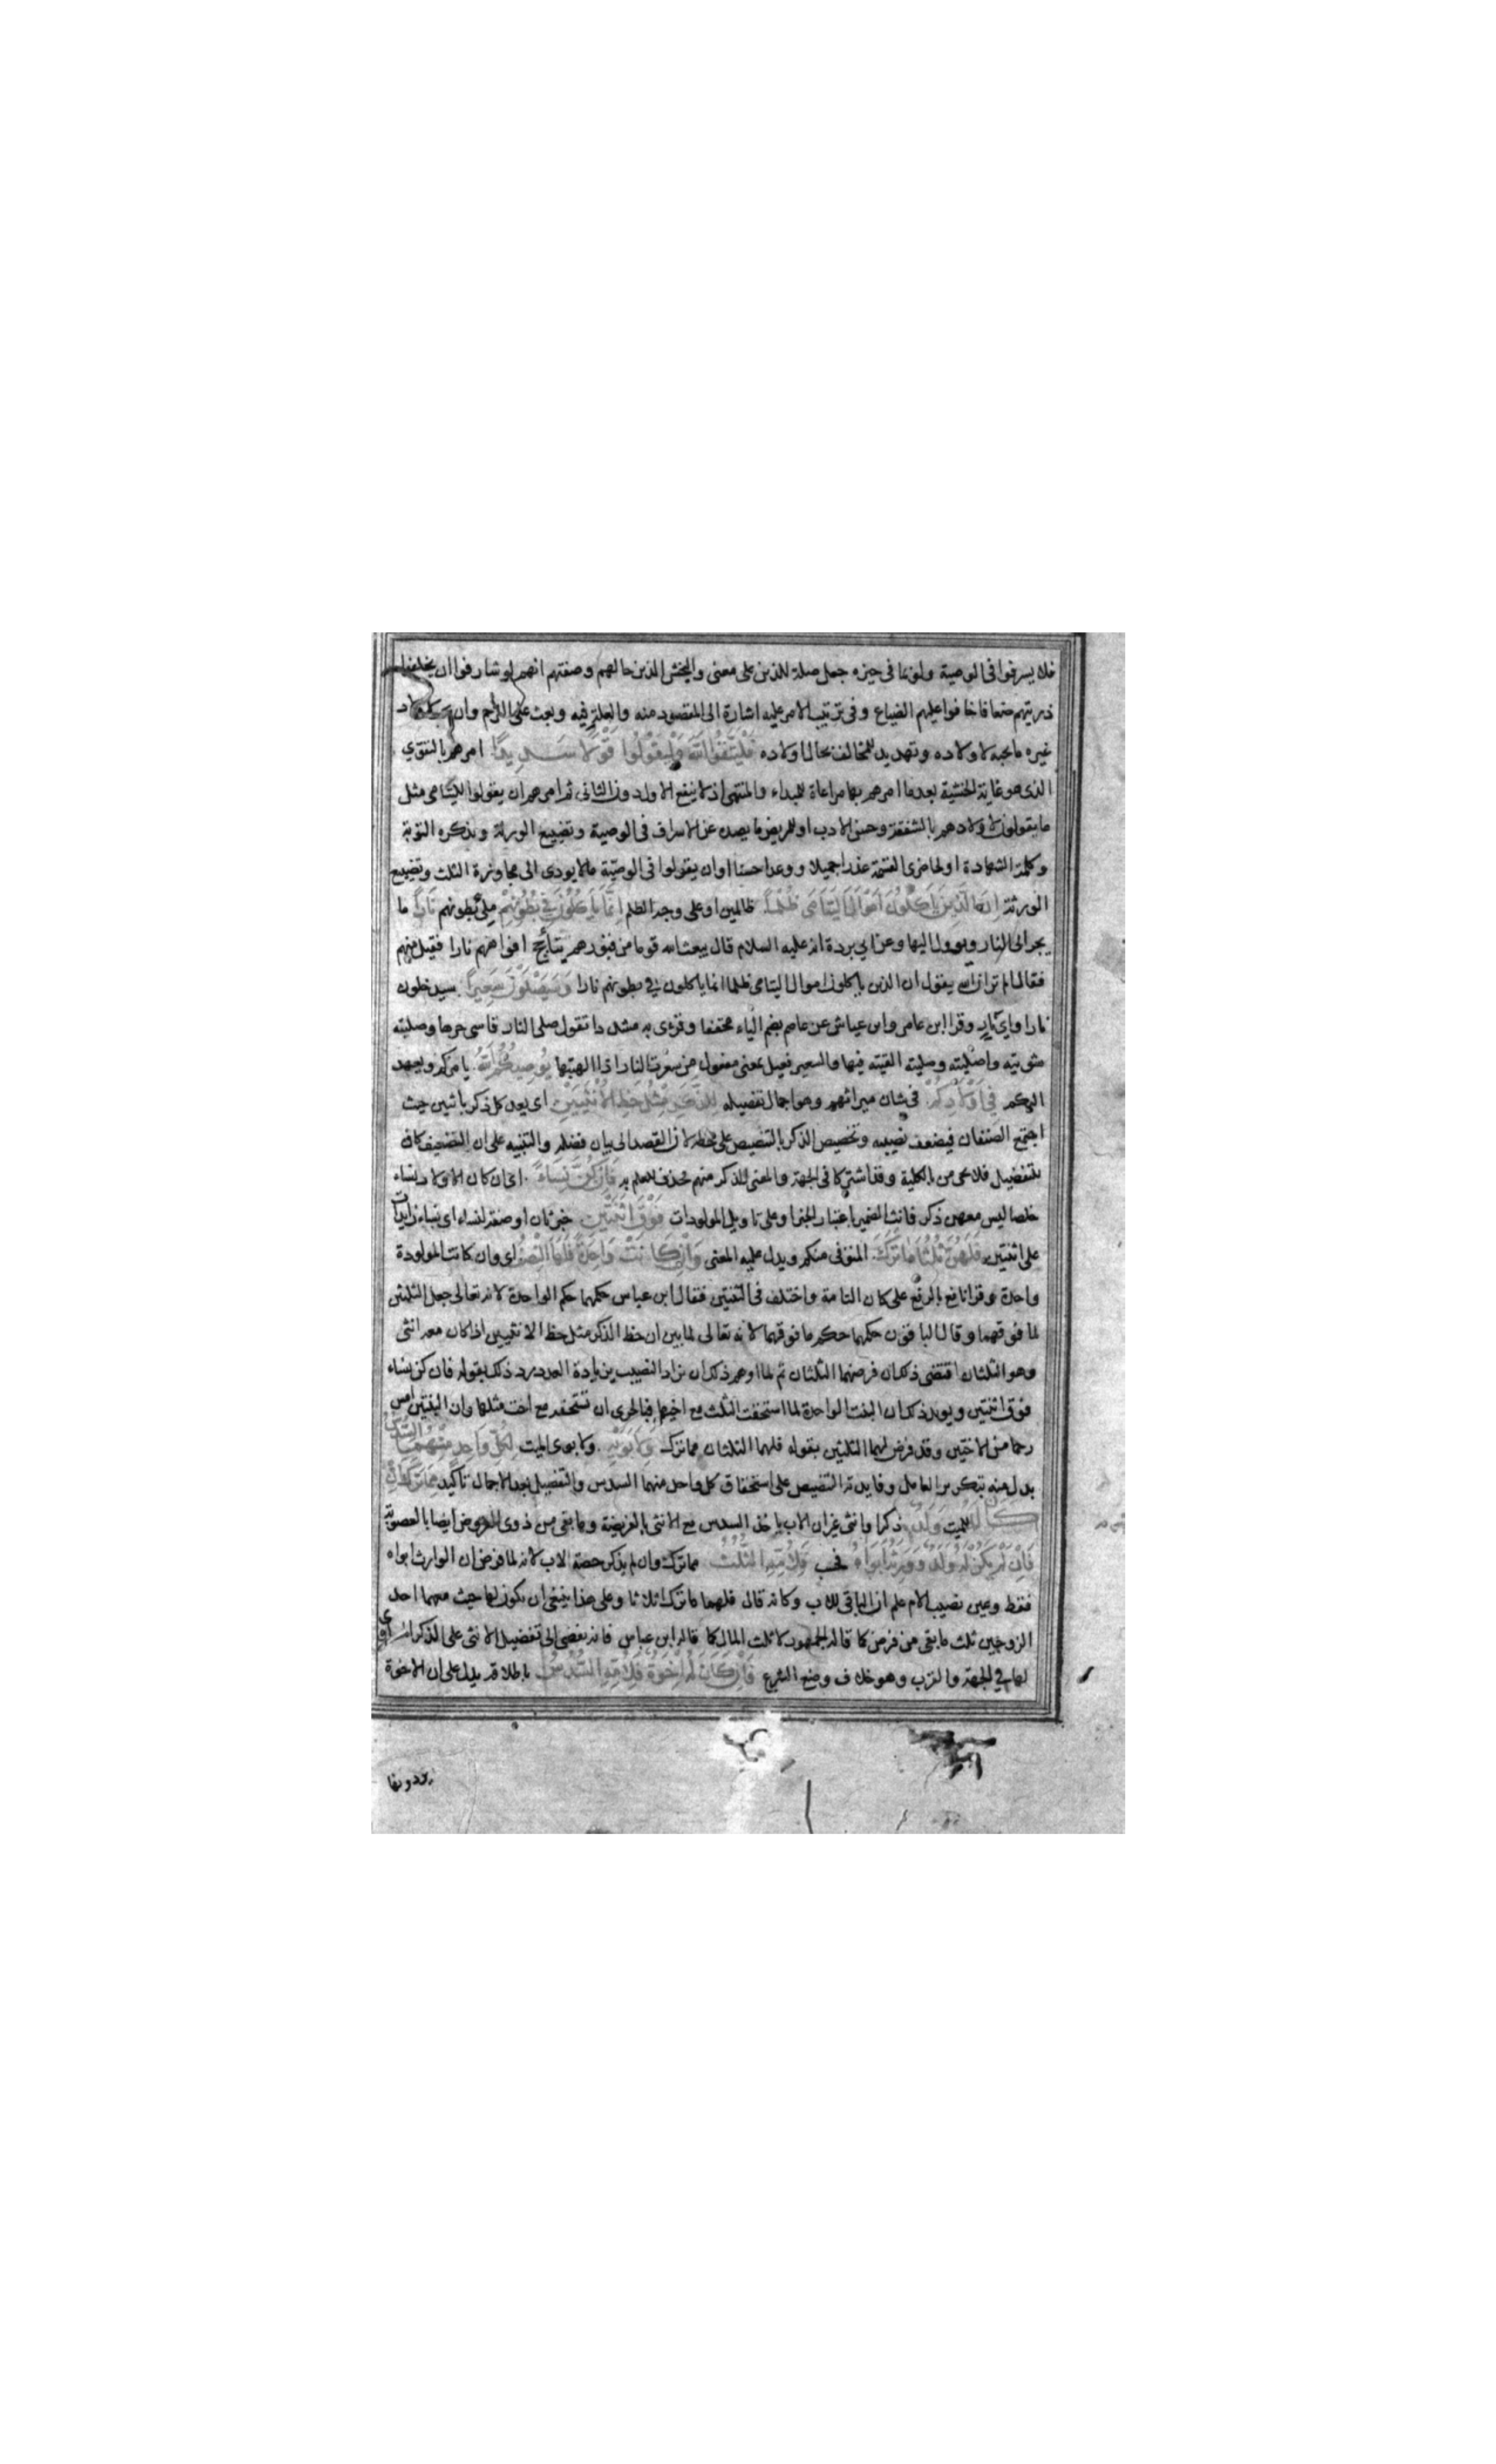 فلا يسرفوا فى الوصية ولو بما فى حيزه جعل صلة للذين على معنى وليخش الذين حالهم وصفتهم انهم لو شارفوا ان يخلفوا
ذريتهم ضعافا خافوا عليهم الضياع وفى ترتيب الامر عليه اشارة الى المقصود منه والعلة فيه وبعث على الترحم وان
غيره ما يحبه لاولاده وتهديد للمخالف بحال اولاده فَلْيَتَّقُوا اللّهَ وَلْيَقُولُوا قَوْلًا سَدِيدًا امرهم بالتقوى
الذى هو غاية الخشية بعدما امرهم بها مراعاة للمبداء والمنتهى اذ لا ينفع الاول دون الثانى ثم امرهم ان يقولوا لليتامى مثل
ما يقولون لاولادهم بالشفقة وحسن الادب او للمريض ما يصده عن الاسراف فى الوصية وتضييع الورثة ويذكره التوبة
وكلمة الشهادة او لحاضرى القسمة عذرا جميلا ووعدا حسنا او ان يقولوا فى الوصية ما لا يودى الى مجاوزة الثلث وتضييع
الورثة اِنَّ الَّذِينَ يَأكُلُونَ اَمْوَالَ اليَتَامَى ظُلْمًا ظالمين او على وجه الظلم اِنَّمَا يَأكُلُونَ فِى بُطُونِهِمْ ملئ بطونهم نَارًا ما
يجر الى النار ويوول اليها وعن ابي بردة انه عليه السلام قال يبعث الله قوما من قبورهم يتأجج افواههم نارا فقيل من هم
فقال الم تر ان الله يقول ان الذين ياكلون اموال اليتامى ظلما انما ياكلون في بطونهم نارا وَسَيَصْلَوْنَ سَعِيرًا سيدخلون
نارا واي نار وقرا ابن عامر وابن عياش عن عاصم بضم الياء مخففا وقرئ به مشددا تقول صلى النار قاسى حرها وصليته
شويته واصليته وصليته القيته فيها والسعير فعيل بمعنى مفعول من سعرت النار اذا الهبتها يُوصِيكُمُ اللّهُ يامركم ويعهد
اليكم فِي اَوْلَادِكُمْ فى شان ميراثهم وهو اجمال تفصيله لِلذَّكَرِ مِثْلُ حَظِّ الاُنْثَيَيْنِ اى يعد كل ذكر بانثيين حيث
اجتمع الصنفان فيضعف نصيبه وتخصيص الذكر بالتنصيص على حظه لان القصد الى بيان فضله والتنبيه على ان التضعيف كاف
للتفضيل فلا يحرمن بالكلية وقد اشتركا فى الجهة والمعنى للذكر منهم فحذف للعلم به فَاِنْ كُنَّ نِسَاءً اى ان كان الاولاد نساء
خلصا ليس معهن ذكر فانث الضمير باعتبار الخبر او على تاويل المولودات فَوْقَ اثْنَتَيْنِ خبر ثان او صفة لنساء اى نساء زايدات
على اثنتين فَلَهُنَّ ثُلُثَا مَا تَرَكَ المتوفى منكم ويدل عليه المعنى وَاِنْ كَانَتْ وَاحِدَةً فَلَهَا النِّصْفُ اى وان كانت المولودة
واحدة وقرا نافع بالرفع على كان التامة واختلف فى الثنتين فقال ابن عباس حكمهما حكم الواحدة لانه تعالى جعل الثلثين
لما فوقهما وقال الباقون حكمهما حكم ما فوقهما لانه تعالى لما بين ان حظ الذكر مثل حظ الانثيين اذا كان معه انثى
وهو الثلثان اقتضى ذلك ان فرضهما الثلثان ثم لما اوهم ذلك ان يزاد النصيب بزيادة العدد رد ذلك بقوله فان كن نساء
فوق اثنتين ويويد ذلك ان البنت الواحدة لما استحقت الثلث مع اخيها فبالحرى ان تستحقه مع اخت مثلها وان البنتين امس
رحما من الاختين وقد فرض لهما الثلثين بقوله فلهما الثلثان مما ترك وَلِاَبَوَيْهِ ولابوى الميت لِكُلِّ وَاحِدٍ مِنْهُمَا السُّدُسُ
بدل منه بتكرير العامل وفايدته التنصيص على استحقاق كل واحد منهما السدس والتفصيل بعد الاجمال تاكيد مِمَّا تَرَكَ اِنْ
كَانَ لَهُ للميت وَلَدٌ ذكرا وانثى غير ان الاب ياخذ السدس مع الانثى بالفريضة وما بقى من ذوى الفروض ايضا بالعصوبة
فَاِنْ لَمْ يَكُنْ لَهُ وَلَدٌ وَوَرِثَهُ اَبَوَاهُ فحسب فَلِاُمِّهِ الثُّلُثُ مما ترك وان لم يذكر حصة الاب لانه لما فرض ان الوارث ابواه
فقط وعين نصيب الام علم ان الباقى للاب وكانه قال فلهما ما ترك اثلاثا وعلى هذا ينبغى ان يكون لها حيث معهما احد
الزوجين ثلث ما بقى من فرضه كما قاله الجمهور لا ثلث المال كما قاله ابن عباس فانه يفضى الى تفضيل الانثى على الذكر المساوى
لها في الجهة والقرب وهو خلاف وضع الشرع فَاِنْ كَانَ لَهُ اِخْوَةٌ فَلِاُمِّهِ السُّدُسُ باطلاقه يدل على ان الاخوة
يردونها